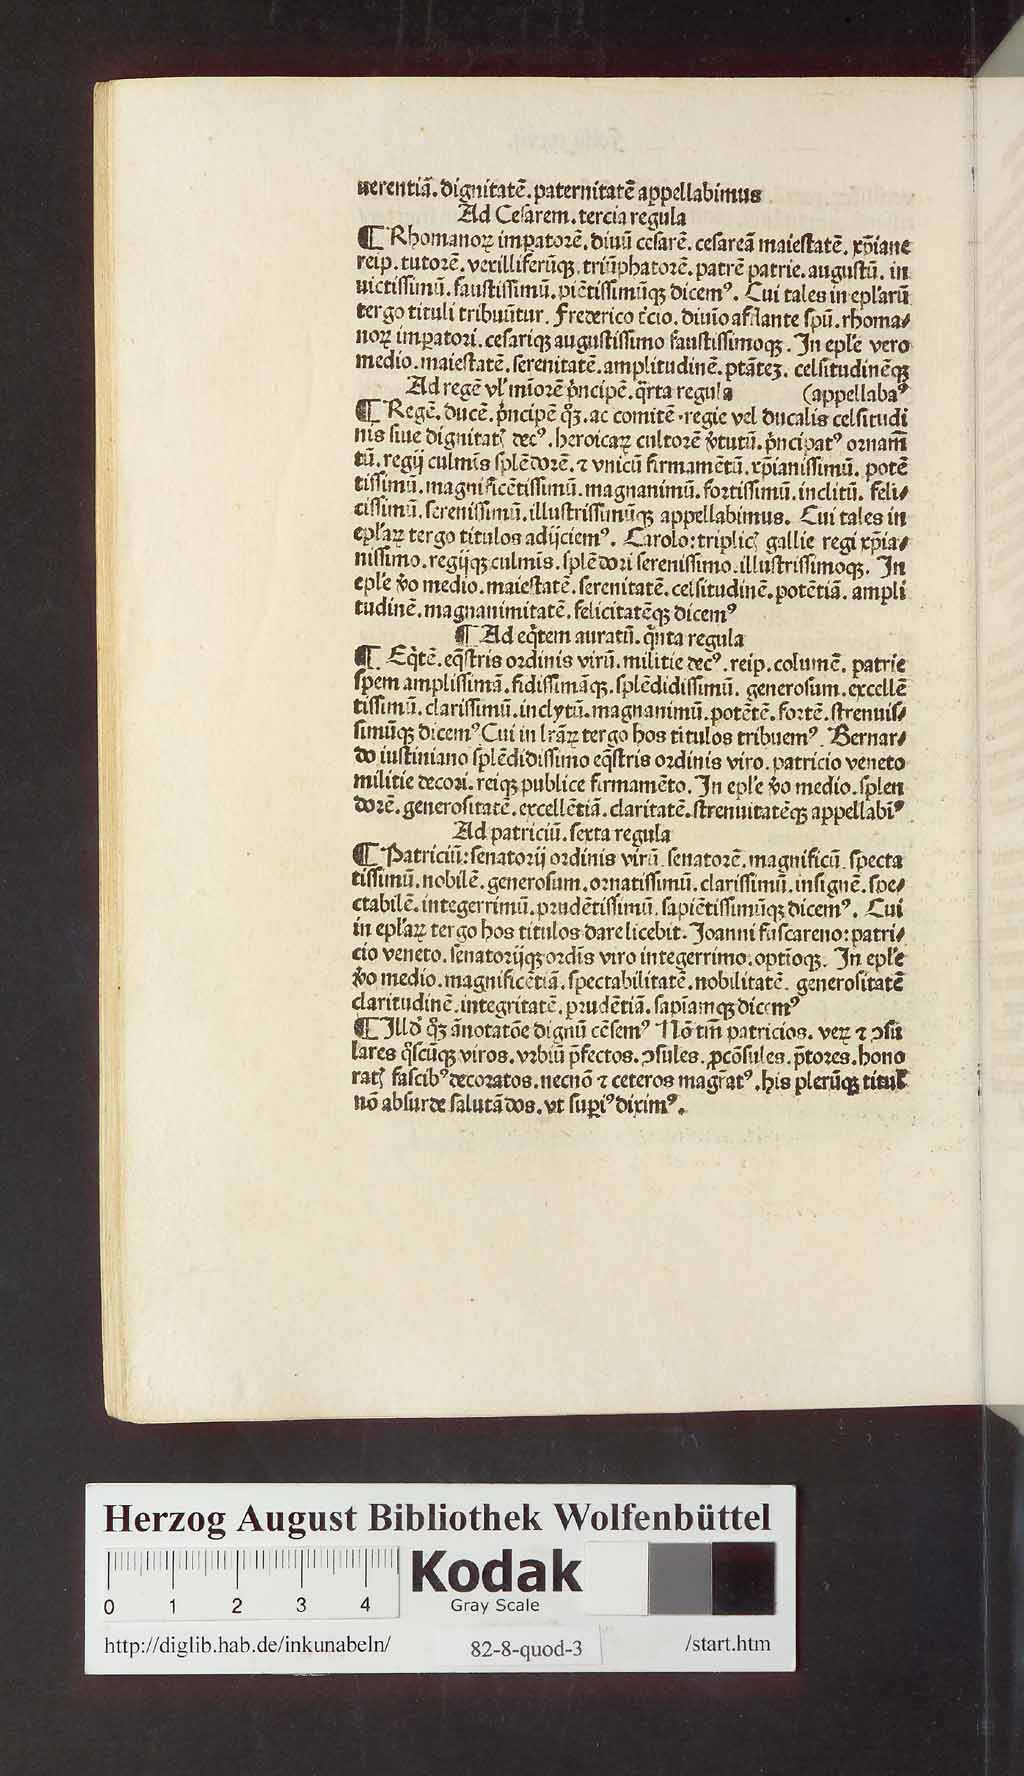 uerentiā. dignitatē. paternitatē appellabimus
Ad Cesarem. tercia regula
¶ Rhomanoꝝ imꝑatorē. diuū cesarē. cesareā maiestatē. xp̄iane
reip. tutorē. vexilliferūqꝫ. triūphatorē. patrē patrie. augustū. in
uictissimū. faustissimū. piētissimūqꝫ dicemꝰ. Cui tales in epl'arū
tergo tituli tribuūtur. Frederico t'cio. diuīo afflante spū. rhoma⸗
noꝝ imꝑatori. cesariqꝫ augustissimo faustissimoqꝫ. In epl'e vero
medio. maiestatē. serenitatē. amplitudinē. ptātēꝫ. celsitudinēqꝫ
Ad regē vl' miorē p̄ncipē. q̄rta regula (appellabaꝰ
¶ Regē. ducē. p̄ncipē qͦꝫ. ac comitē. regie vel ducalis celsitudi
nis siue dignitatꝭ decꝰ. heroicaꝝ cultorē v̓tutū. p̄ncipatꝰ ornam̄
tū. regij culmīs splēdorē. ⁊ vnicū firmamētū. xp̄ianissimū. potē
tissimū. magnificētissimū. magnanimū. fortissimū. inclitū. feli⸗
cissimū. serenissimū. illustrissimūqꝫ appellabimus. Cui tales in
epl'aꝝ tergo titulos adijciemꝰ. Carolo: triplicꝭ gallie regi xp̄ia⸗
nissimo. regijqꝫ culmīs. splēdori serenissimo. illustrissimoqꝫ. In
epl'e v̓o medio. maiestatē. serenitatē. celsitudinē. potētiā. ampli
tudinē. magnanimitatē. felicitatēqꝫ dicemꝰ
¶ Ad eq̄tem auratū. q̄nta regula
¶ Eq̄tē. eq̄stris ordinis virū. militie decꝰ. reip. columē. patrie
spem amplissimā. fidissimāqꝫ. splēdidissimū. generosum. excellē
tissimū. clarissimū. inclytū. magnanimū. potētē. fortē. strenuis⸗
simūqꝫ dicemꝰ Cui in lr̄aꝝ tergo hos titulos tribuemꝰ. Bernar⸗
do iustiniano splēdidissimo eq̄stris ordinis viro. patricio veneto
militie decori. reiqꝫ publice firmamēto. In epl'e v̓o medio. splen
dorē. generositatē. excellētiā. claritatē. strenuitatēqꝫ appellabīꝰ
Ad patriciū. sexta regula
¶ Patriciū: senatorij ordinis virū. senatorē. magnificū. specta
tissimū. nobilē. generosum. ornatissimū. clarissimū. insignē. spe⸗
ctabilē. integerrimū. prudētissimū. sapiētissimūqꝫ dicemꝰ. Cui
in epl'aꝝ tergo hos titulos dare licebit. Joanni fuscareno: patri⸗
cio veneto. senatorijqꝫ ordīs viro integerrimo. optīoqꝫ. In epl'e
v̓o medio. magnificētiā. spectabilitatē. nobilitatē. generositatē
claritudinē. integritatē. prudētiā. sapīamqꝫ dicemꝰ
¶ Illd' qͦꝫ ānotatōe dignū cēsemꝰ Nō tm̄ patricios. veꝝ ⁊ ↄsu
lares qͦscūqꝫ viros. vrbiū p̄fectos. ↄsules. ꝓcōsules. p̄tores. hono
ratꝭ fascibꝰ decoratos. necnō ⁊ ceteros magr̄atꝰ. his plerūqꝫ titul'
nō absurde salutādos. vt suꝑiꝰ diximꝰ.
Herzog August Bibliothek Wolfenbüttel
0 1 2 3 4
Kodak
Gray Scale
http://diglib.hab.de/inkunabeln/ 82-8-quod-3 /start.htm